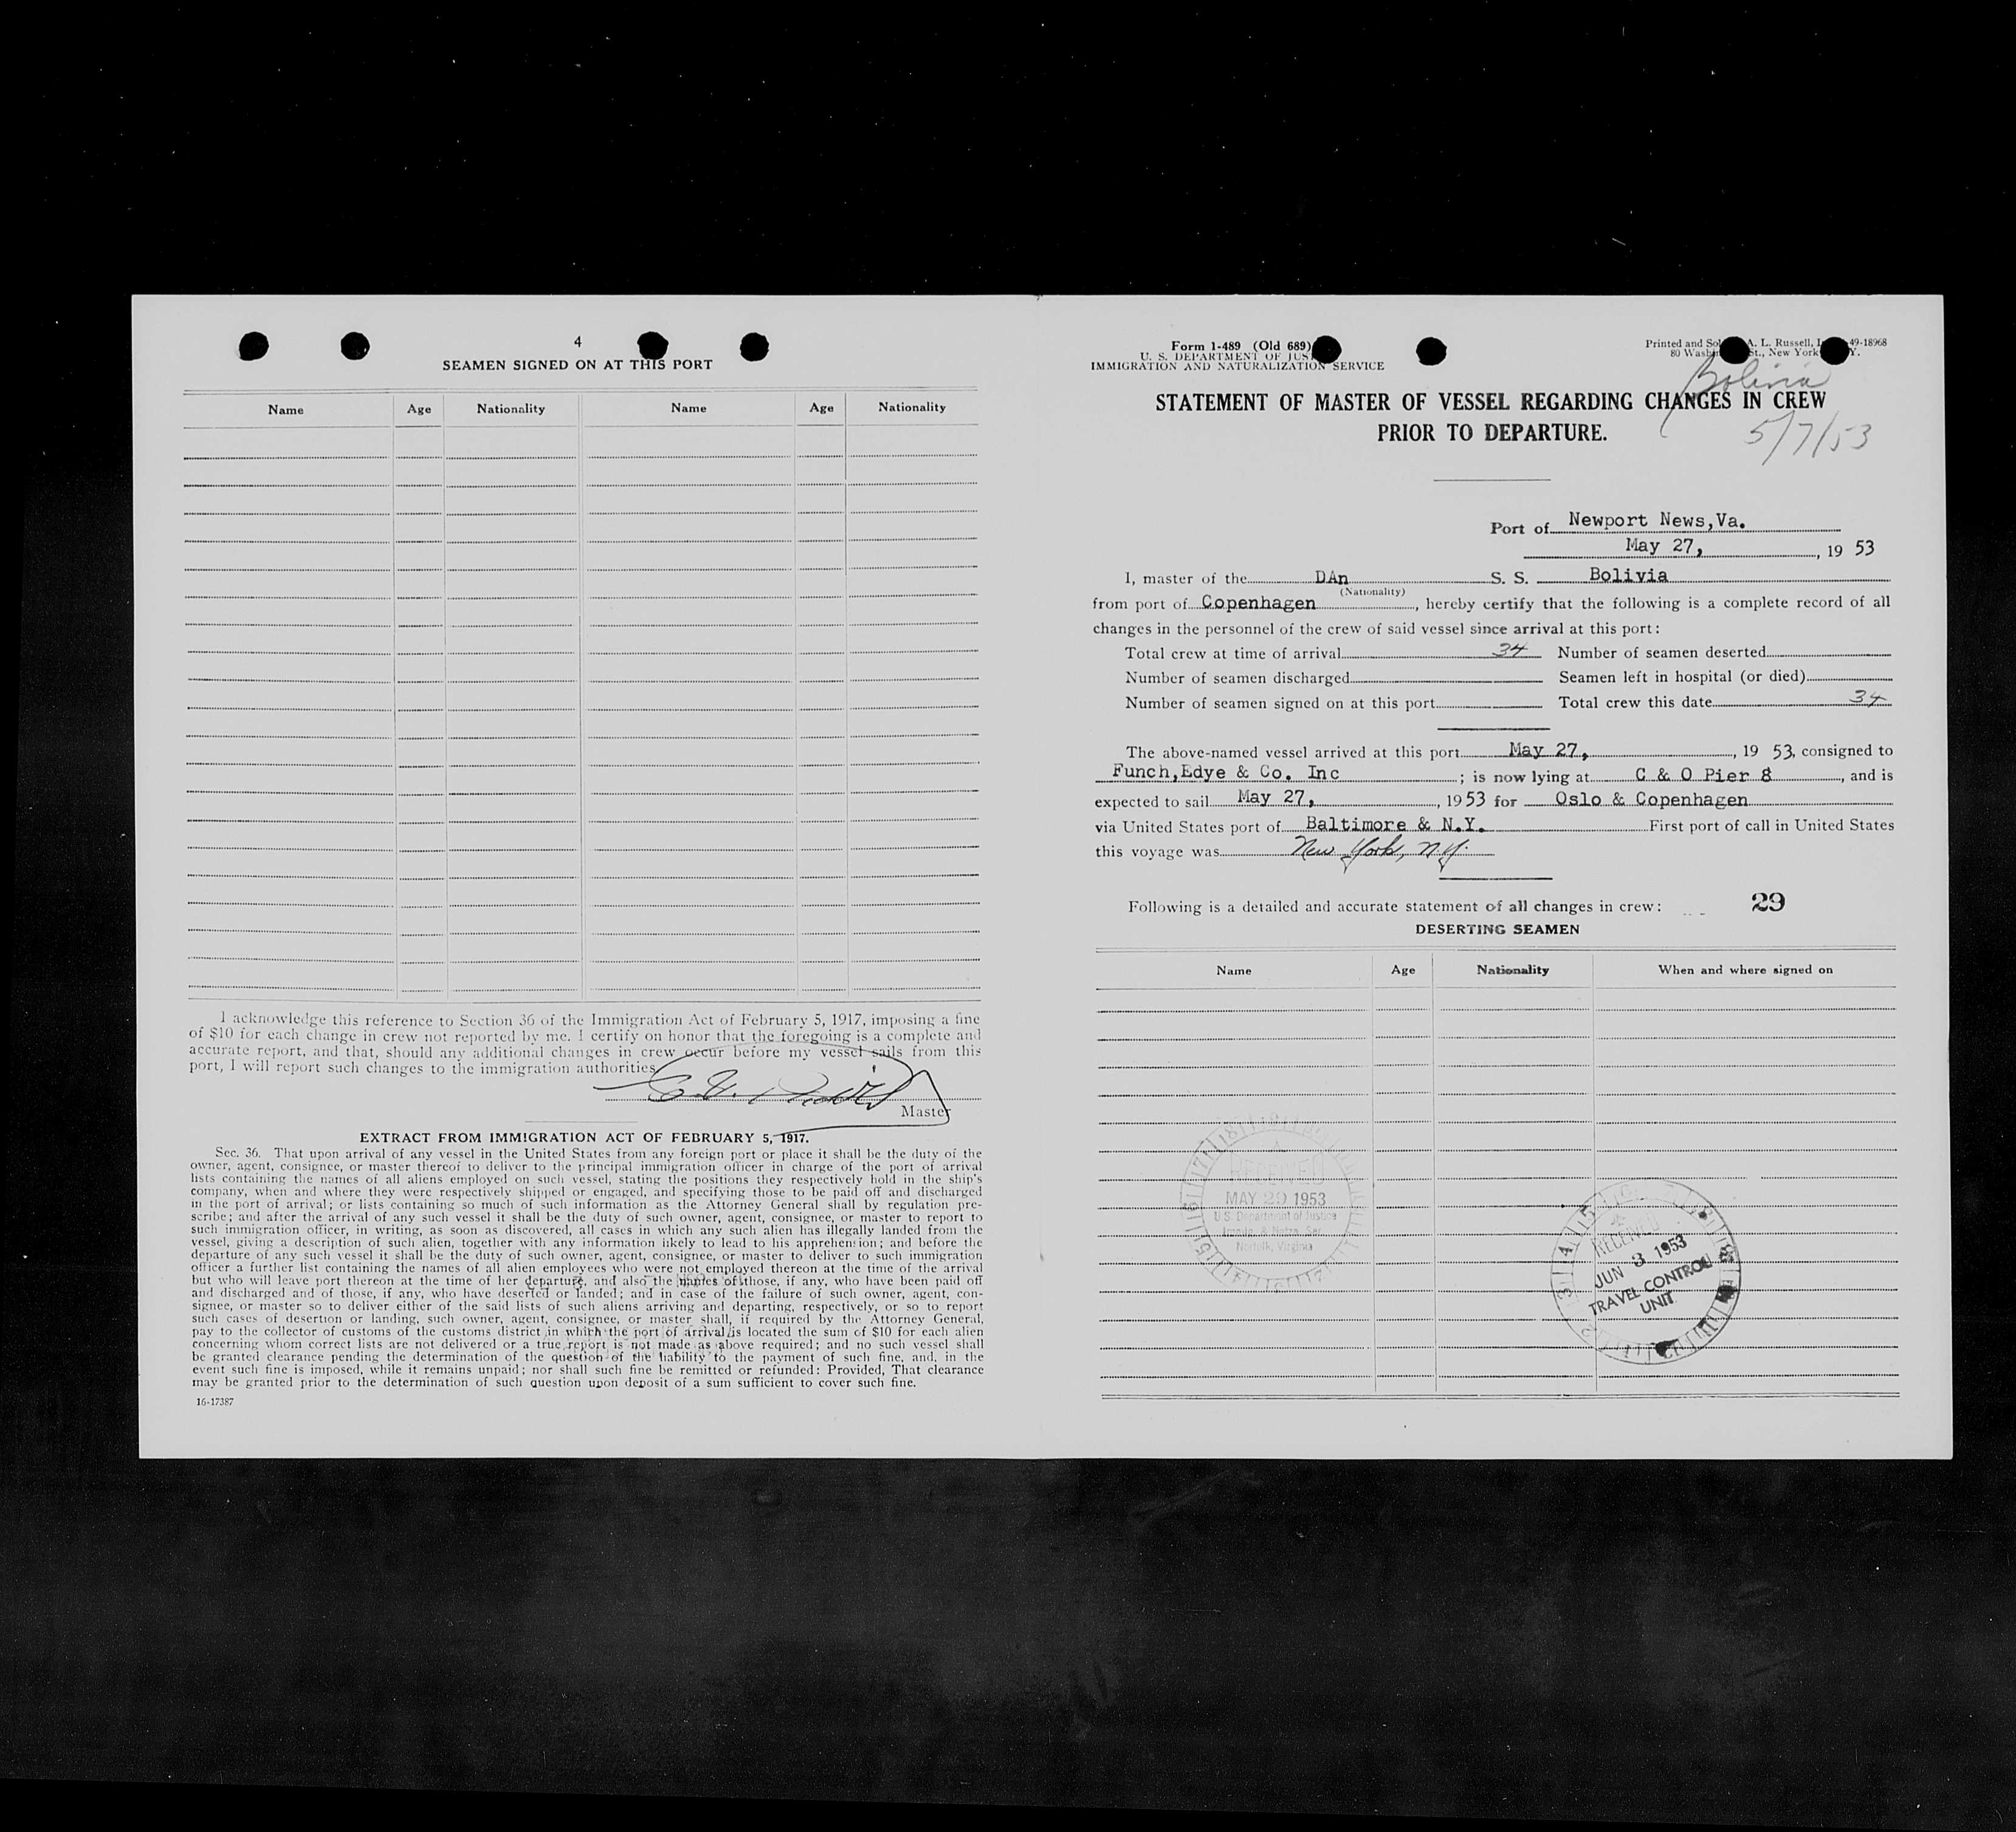 4
SEAMEN SIGNED ON AT THIS PORT
Name Age Nationality Name Age Nationality
I acknowledge this reference to Section 36 of the Immigration Act of February 5, 1917, imposing a fine
of $10 for each change in crew not reported by me. I certify on honor that the foregoing is a complete and
accurate report, and that, should any additional changes in crew occur before my vessel sails from this
port, I will report such changes to the immigration authorities
Master
EXTRACT FROM IMMIGRATION ACT OF FEBRUARY 5, 1917.
Sec. 36. That upon arrival of any vessel in the United States from any foreign port or place it shall be the duty of the
owner, agent, consignee, or master thereof to deliver to the principal immigration officer in charge of the port of arrival
lists containing the names of all aliens employed on such vessel, stating the positions they respectively hold in the ship's
company, when and where they were respectively shipped or engaged, and specifying those to be paid off and discharged
in the port of arrival; or lists containing so much of such information as the Attorney General shall by regulation pre-
scribe; and after the arrival of any such vessel it shall be the duty of such owner, agent, consignee, or master to report to
such immigration officer, in writing, as soon as discovered, all cases in which any such alien has illegally landed from the
vessel, giving a description of such alien, together with any information likely to lead to his apprehension; and before the
departure of any such vessel it shall be the duty of such owner, agent, consignee, or master to deliver to such immigration
officer a further list containing the names of all alien employees who were not employed thereon at the time of the arrival
but who will leave port thereon at the time of her departure, and also the names of those, if any, who have been paid off
and discharged and of those, if any, who have deserted or landed; and in case of the failure of such owner, agent, con-
signee, or master so to deliver either of the said lists of such aliens arriving and departing, respectively, or so to report
such cases of desertion or landing, such owner, agent, consignee, or master shall, if required by the Attorney General,
pay to the collector of customs of the customs district in which the port of arrival is located the sum of $10 for each alien
concerning whom correct lists are not delivered or a true report is not made as above required; and no such vessel shall
be granted clearance pending the determination of the question of the liability to the payment of such fine, and, in the
event such fine is imposed, while it remains unpaid; nor shall such fine be remitted or refunded: Provided, That clearance
may be granted prior to the determination of such question upon deposit of a sum sufficient to cover such fine.
16-17387
Form 1-489 (Old 689)
U. S. DEPARTMENT OF JUS
IMMIGRATION AND NATURALIZATION SERVICE
Printed and Sol A. L. Russell, 49-18968
80 Wash St., New York Y.
Bolivia
STATEMENT OF MASTER OF VESSEL REGARDING CHANGES IN CREW
PRIOR TO DEPARTURE.
5/7/53
Port of Newport News,Va.
May 27, , 19 53
I, master of the DAn S. S. Bolivia
(Nationality)
from port of Copenhagen , hereby certify that the following is a complete record of all
changes in the personnel of the crew of said vessel since arrival at this port:
Total crew at time of arrival 34 Number of seamen deserted
Number of seamen discharged Seamen left in hospital (or died)
Number of seamen signed on at this port Total crew this date 34
The above-named vessel arrived at this port May 27, , 19 53, consigned to
Funch,Edye & Co. Inc ; is now lying at C & O Pier 8 , and is
expected to sail May 27, , 19 53 for Oslo & Copenhagen
via United States port of Baltimore & N.Y. First port of call in United States
this voyage was New York, N.Y.
Following is a detailed and accurate statement of all changes in crew: 29
DESERTING SEAMEN
Name Age Nationality When and where signed on
RECEIVED
MAY 29 1953
U.S. Department of Justice
Immig. & Natza. Ser.
Norfolk, Virginia
RECEIVED
JUN 3 1953
TRAVEL CONTROL
UNIT